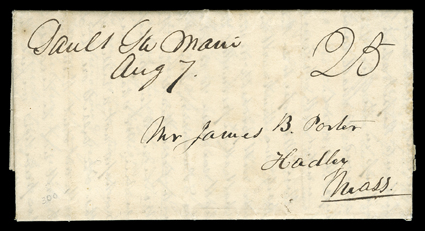 Sault Ste Marie
Aug 7.
25
Mr James B. Porter
Hadley
Mass.
300